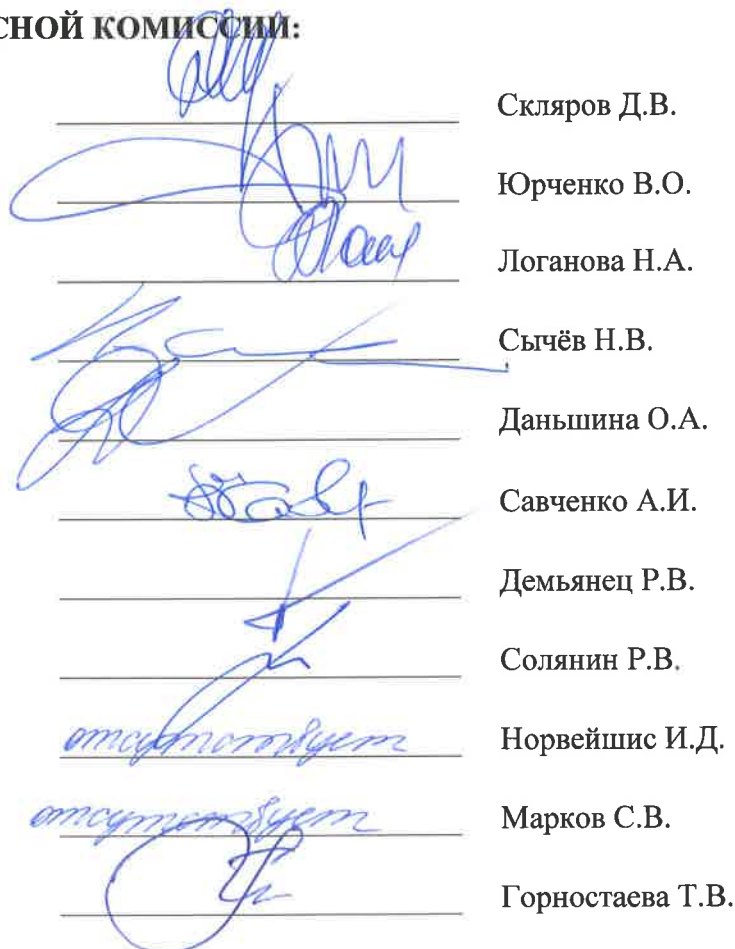 СНОЙ КОМИССИИ:
Скляров Д.В.
Юрченко В.О.
Логанова Н.А.
Сычёв Н.В.
Даньшина О.А.
Савченко А.И.
Демьянец Р.В.
Солянин Р.В.
отсутствует Норвейшис И.Д.
отсутствует Марков С.В.
Горностаева Т.В.